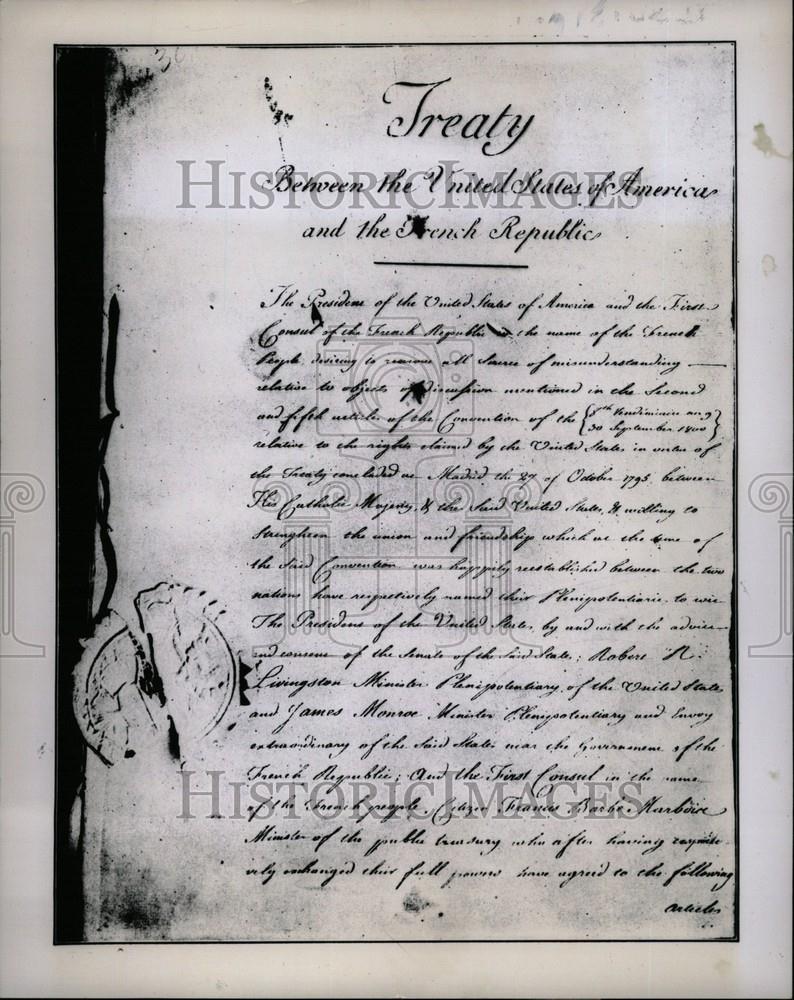 Treaty
Between the United States of America
and the French Republic
The President of the United States of America and the First
Consul of the French Republic in the name of the French
People desiring to remove all Source of misunderstanding
relative to objects of discussion mentioned in the Second
and fifth articles of the Convention of the { 8th Vendémiaire an 9
30 September 1800 }
relative to the rights claimed by the United States in virtue of
the Treaty concluded at Madrid the 27 of October 1795, between
His Catholic Majesty, & the Said United States, & willing to
Strengthen the union and friendship which at the time of
the Said Convention was happily reestablished between the two
nations have respectively named their Plenipotentiaries to wit
The President of the United States, by and with the advice
and consent of the Senate of the Said States; Robert R.
Livingston Minister Plenipotentiary of the United States
and James Monroe Minister Plenipotentiary and Envoy
extraordinary of the Said States near the Government of the
French Republic; And the First Consul in the name
of the French people, Citizen Francis Barbé Marbois
Minister of the public treasury who after having respecti-
vely exchanged their full powers have agreed to the following
articles
HISTORIC IMAGES
HISTORIC IMAGES